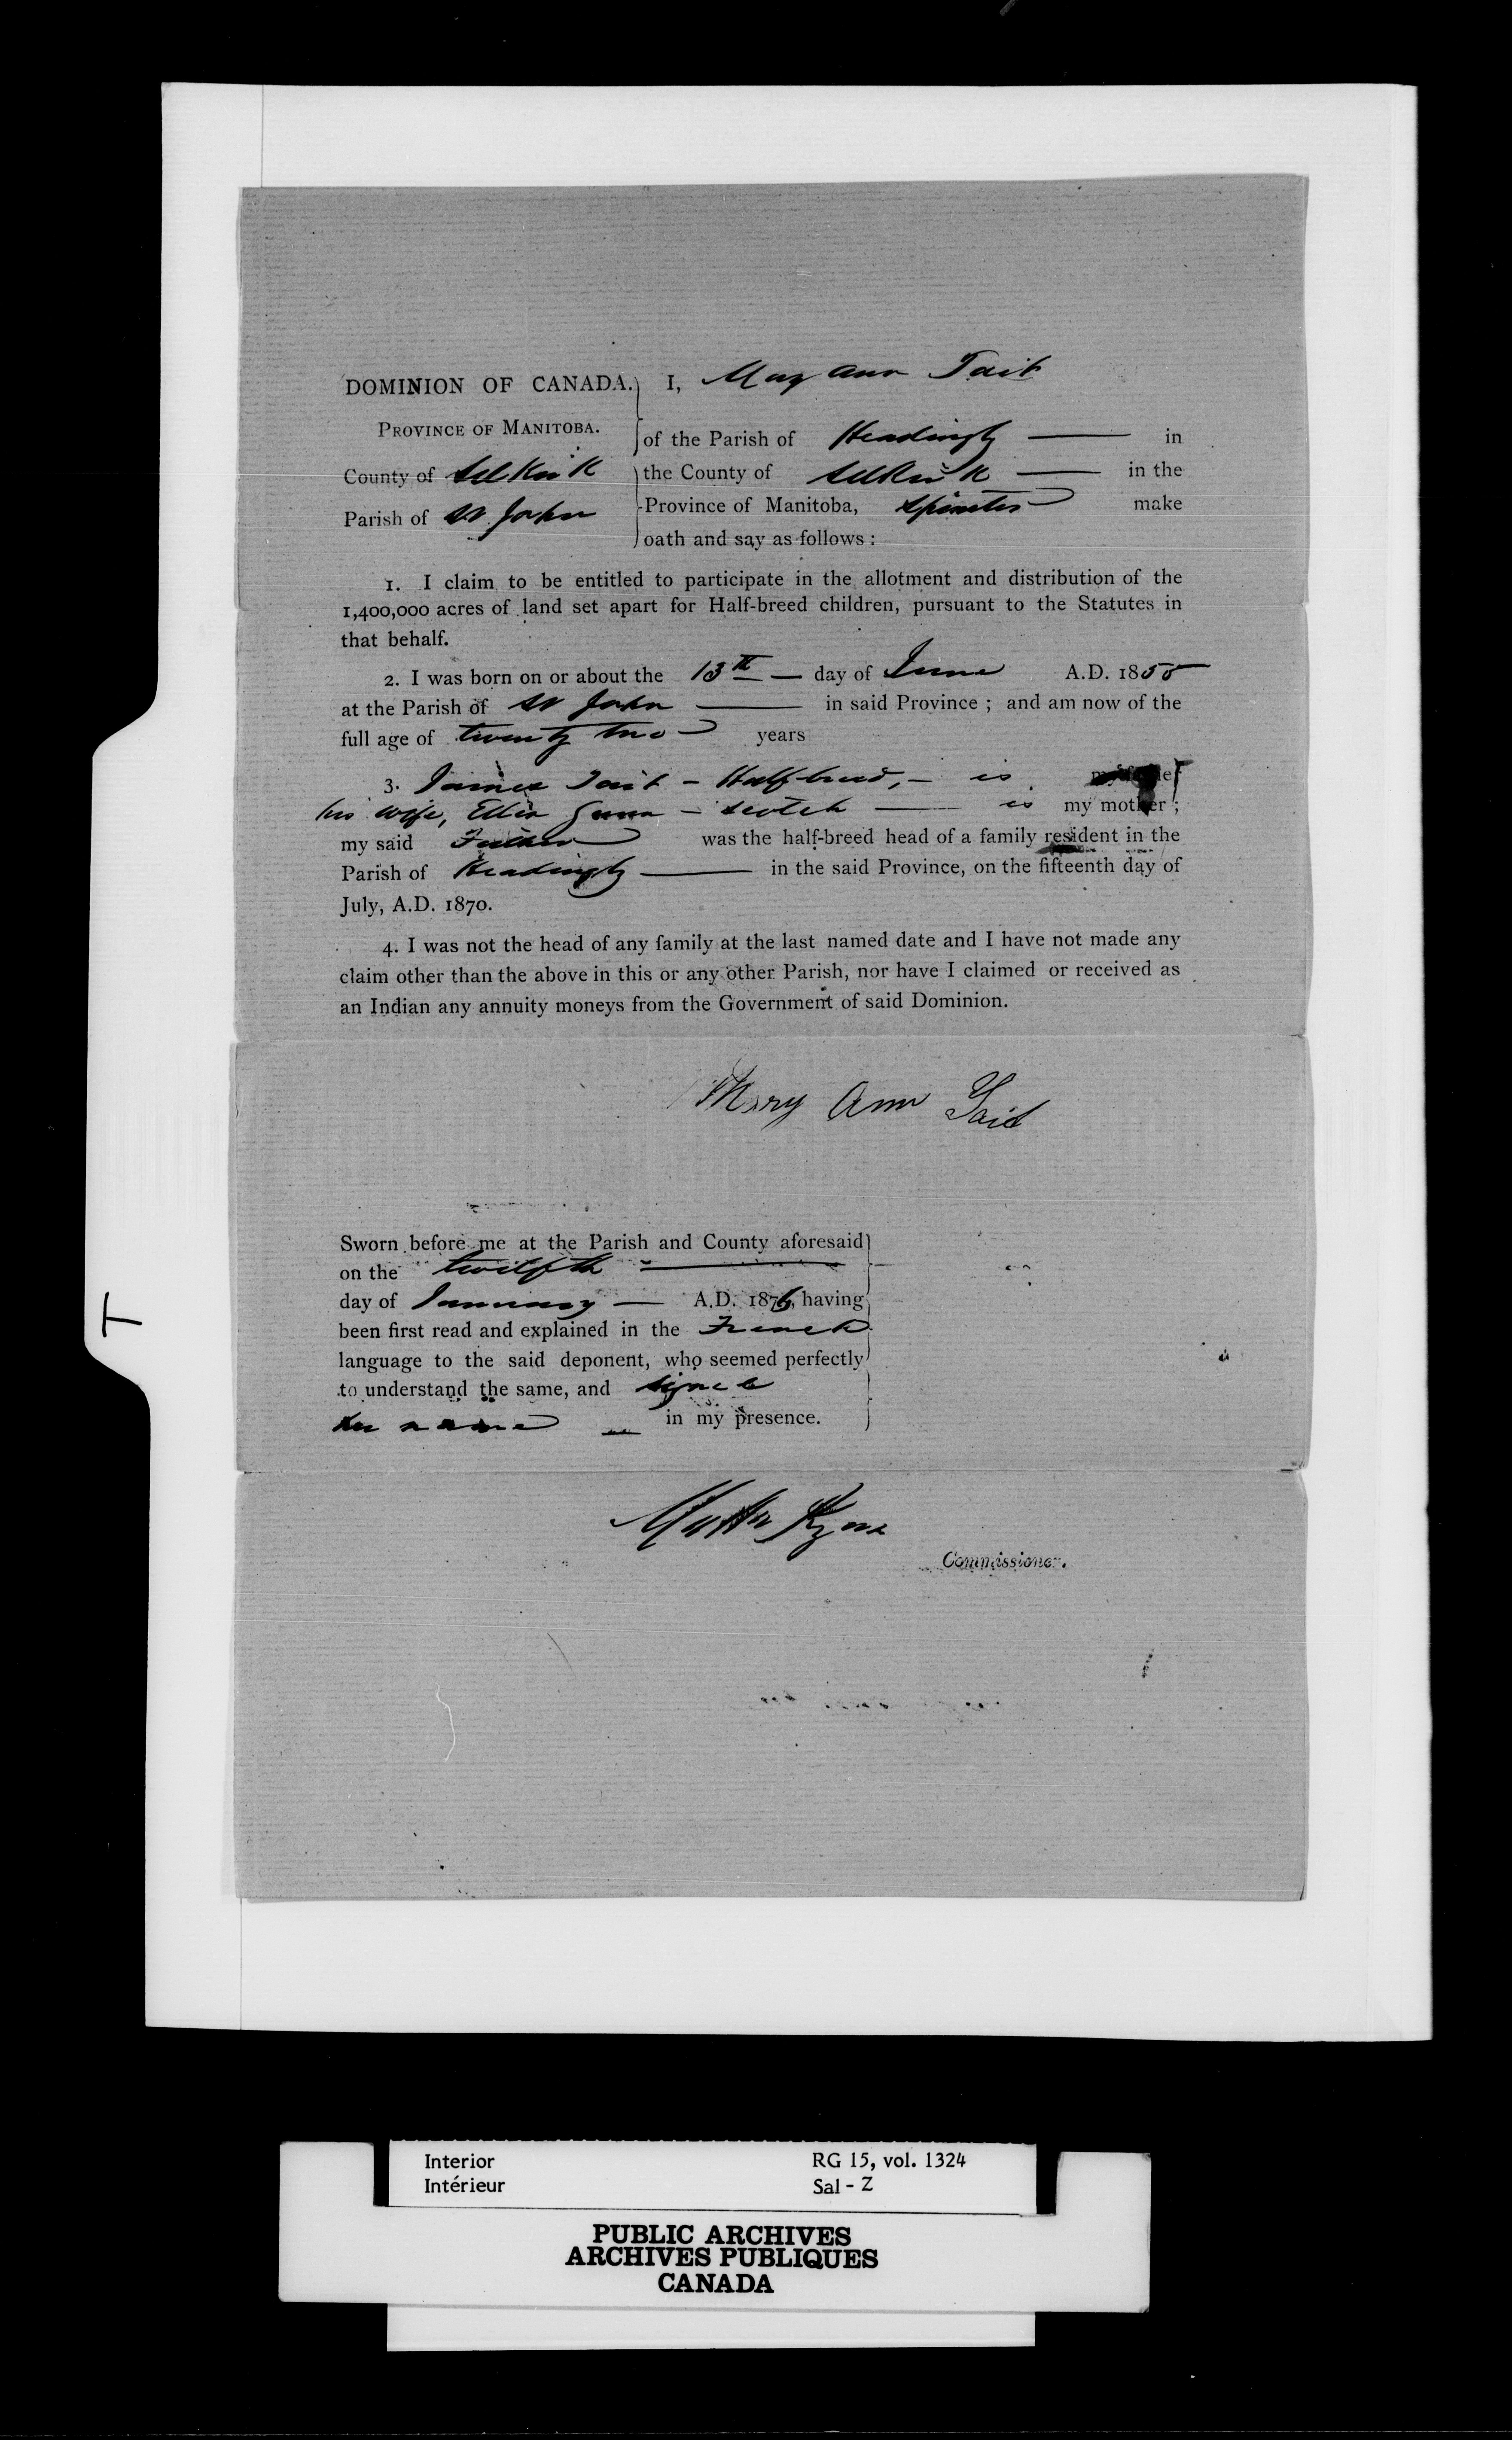 DOMINION OF CANADA. I, Mary Ann Tait
PROVINCE OF MANITOBA. of the Parish of Headingly — in
County of Selkirk the County of Selkirk — in the
Parish of St John Province of Manitoba, Spinster make
oath and say as follows :
1. I claim to be entitled to participate in the allotment and distribution of the
1,400,000 acres of land set apart for Half-breed children, pursuant to the Statutes in
that behalf.
2. I was born on or about the 13th — day of June A.D. 1855
at the Parish of St John — in said Province ; and am now of the
full age of twenty two years
3. James Tait - Half-breed, - is my father
his wife, Ellen Gunn - Scotch — is my mother ;
my said Father was the half-breed head of a family resident in the
Parish of Headingly — in the said Province, on the fifteenth day of
July, A.D. 1870.
4. I was not the head of any family at the last named date and I have not made any
claim other than the above in this or any other Parish, nor have I claimed or received as
an Indian any annuity moneys from the Government of said Dominion.
Mary Ann Tait
Sworn before me at the Parish and County aforesaid
on the twelfth —
day of January — A.D. 1876, having
been first read and explained in the French
language to the said deponent, who seemed perfectly
to understand the same, and signed
her name — in my presence.
Matthew Ryan
Commissioner.
T
Interior RG 15, vol. 1324
Intérieur Sal - Z
PUBLIC ARCHIVES
ARCHIVES PUBLIQUES
CANADA